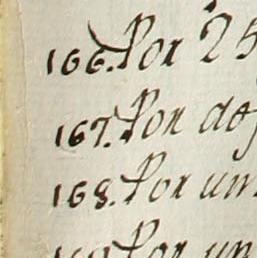 166. Por 25
167. Por dos
168. Por un
169. Por un